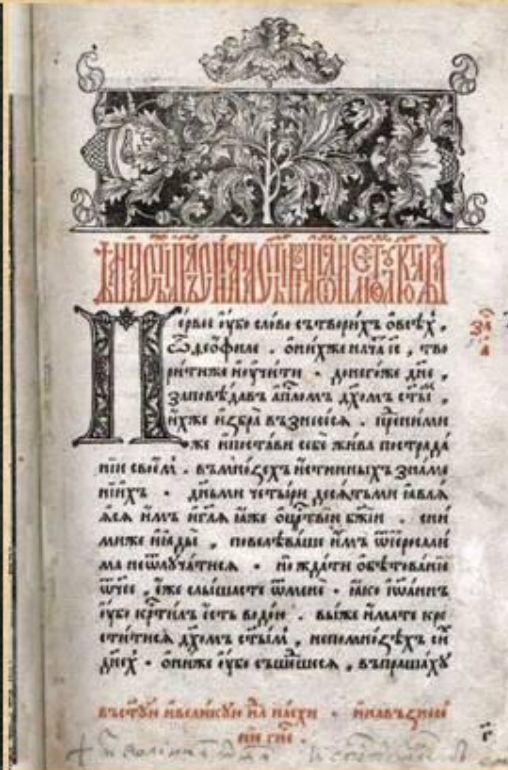 Первое ѹ҆бо сло́во сътвори́хъ ѡ҆все́хъ,
ѽ део́филе. ѡ҆ни́хже нача́ і҃с, тво
ри́тиже и҆ѹчи́ти. донего́же дн҃е,
запове́давъ а҆пⷭ҇ломъ дх҃омъ ст҃ы́мъ,
и҆́хже и҆збра̀ възнесе́сѧ. пред̾ни́ми
же и҆поста́ви себѐ жи́ва пострада́
нїи свое́мъ. въмно́зехъ и҆́стинныхъ зна́ме
нїихъ. де́ньми четы́ри десѧ́тьми ꙗ҆влѧ́
ѧсѧ и҆̀мъ и҆гл҃ѧ ꙗ҆́же ѡ҆црⷭ҇твїи бж҃їи. сни́
миже и҆ꙗды̀, повелева́ше и҆̀мъ ѿі҆ерⷭ҇али́
ма неѿлꙋча́тисѧ. но жда́ти ѡ҆бетова́нїѧ
ѻ҆́ч҃ее, е҆́же слы́шасте ѿменѐ. ꙗ҆́ко і҆ѡа́ннъ
ѹ҆́бо крⷭ҇ти́лъ е҆́сть водо́ю. вы́же и҆́мате кре
сти́тисѧ дх҃омъ ст҃ы́мъ, непомно́зехъ си́хъ
дне́хъ. ѡ҆ни́же ѹ҆́бо съше́дшесѧ, въпраша́хꙋ
въст҃ꙋ́ю и҆вели́кꙋю нⷣлю па́схи. и҆навъзнесе́
нїе гн҃е.
за
а